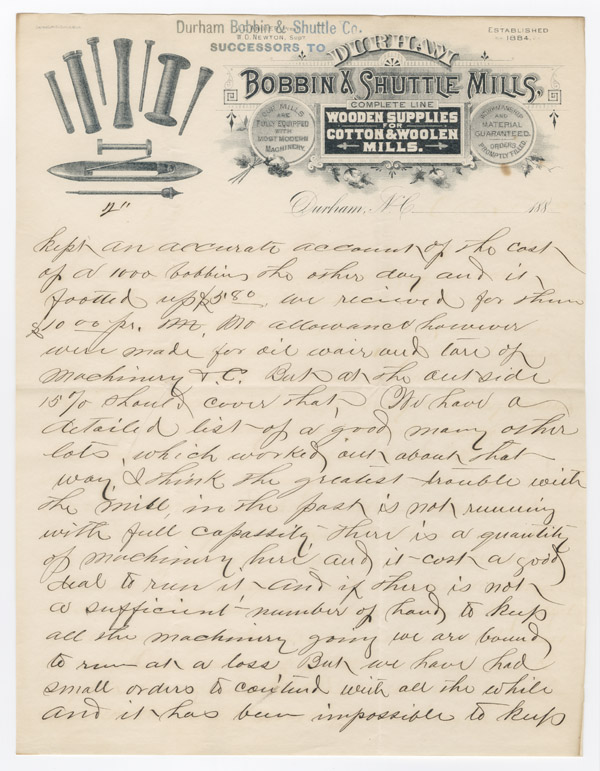 Durham Bobbin & Shuttle Co.
B. C. NEWTON, Supt
SUCCESSORS TO
ESTABLISHED
1884.
DURHAM
BOBBIN & SHUTTLE MILLS,
COMPLETE LINE
WOODEN SUPPLIES
FOR
COTTON & WOOLEN
MILLS.
OUR MILLS
ARE
FULLY EQUIPPED
WITH
MOST MODERN
MACHINERY.
WORKMANSHIP
AND
MATERIAL
GUARANTEED.
ORDERS
PROMPTLY FILLED.
Durham, N.C. 188
2"
kept an accurate account of the cost
of a 1000 bobbins the other day and it
footted up $5 80 we recieved for them
$10 00 pr. M. No allowance however
were made for oil wair and tare of
machinery & C. But at the out side
15% should cover that, We have a
detailed list of a good many other
lots, which worked out about that
way, I think the greatest trouble with
the mill, in the past is not running
with full capassity, there is a quantity
of machinery here and it cost a good
deal to run it and if there is not
a sufficient number of hands to keep
all the machinery going we are bound
to run at a loss. But we have had
small orders to contend with all the while
and it has been impossible to keep